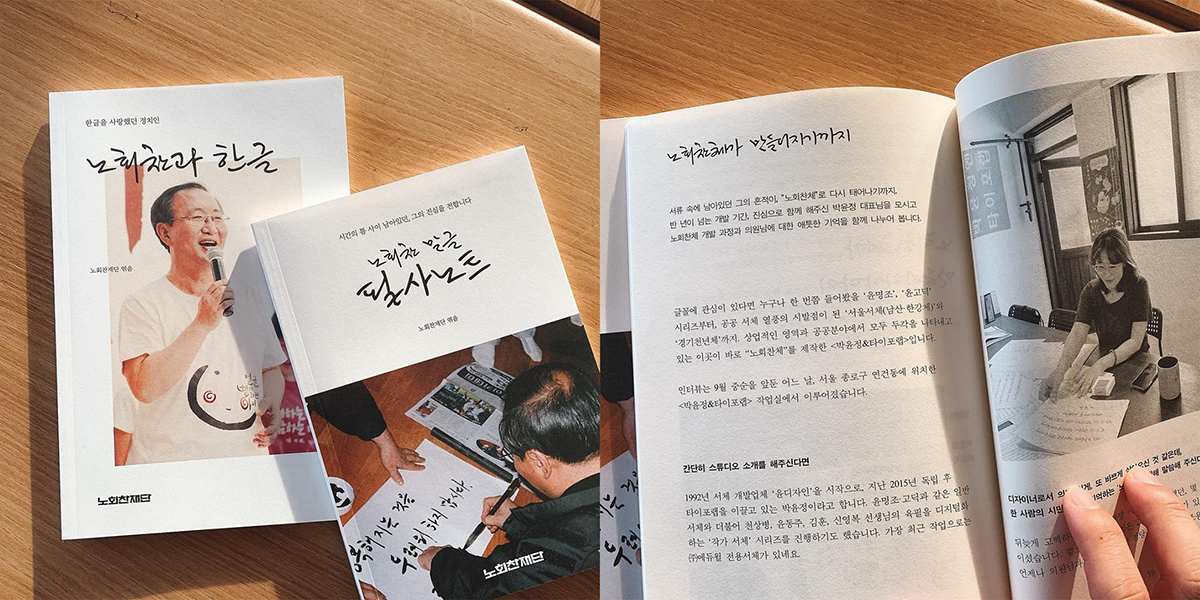 한글을 사랑했던 정치인
노회찬과 한글
노회찬재단 엮음
노회찬재단
시간의 틈 사이 남아있던, 그의 진심을 전합니다
노회찬 말글
필사노트
노회찬재단 엮음
지는 것을
우려하지 맙시다.
노회찬재단
노회찬체가 만들어지기까지
서류 속에 남아있던 그의 흔적이, "노회찬체"로 다시 태어나기까지.
반 년이 넘는 개발 기간, 진심으로 함께 해주신 박윤정 대표님을 모시고
노회찬체 개발 과정과 의원님에 대한 애틋한 기억을 함께 나누어 봅니다.
글꼴에 관심이 있다면 누구나 한 번쯤 들어봤을 '윤명조', '윤고딕'
시리즈부터, 공공 서체 열풍의 시발점이 된 '서울서체(남산·한강체)'와
'경기천년체'까지. 상업적인 영역과 공공분야에서 모두 두각을 나타내고
있는 이곳이 바로 "노회찬체"를 제작한 <박윤정&타이포랩>입니다.
인터뷰는 9월 중순을 앞둔 어느 날, 서울 종로구 연건동에 위치한
<박윤정&타이포랩> 작업실에서 이루어졌습니다.
간단히 스튜디오 소개를 해주신다면
1992년 서체 개발업체 '윤디자인'을 시작으로, 지난 2015년 독립 후
타이포랩을 이끌고 있는 박윤정이라고 합니다. 윤명조·고딕과 같은 일반
서체와 더불어 천상병, 윤동주, 김훈, 신영복 선생님의 육필을 디지털화
하는 '작가 서체' 시리즈를 진행하기도 했습니다. 가장 최근 작업으로는
㈜에듀윌 전용서체가 있네요.
박윤정&
타이포랩
디자이너로서 또 바르게 것 같은데,
한 사람의 시민 말씀해 주신다
뒤늦게 고백하
이셨습니다.
언제나 의원님